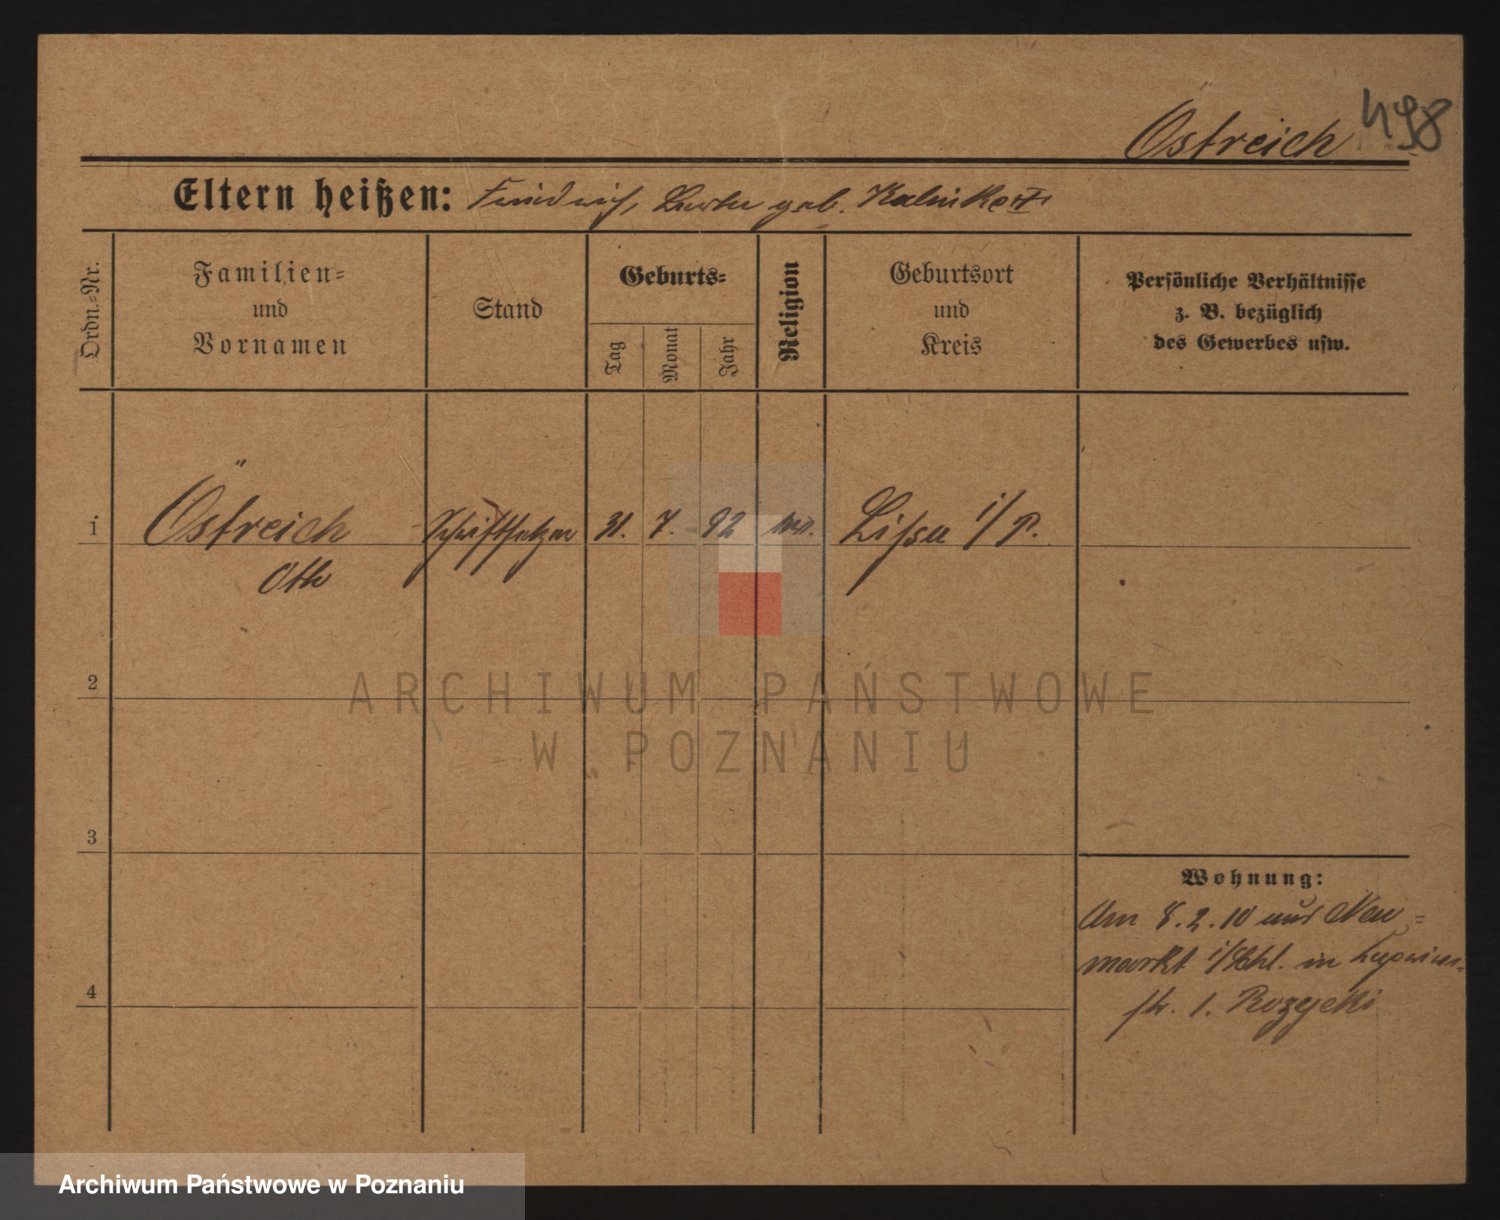 498
Östreich
Eltern heißen: Friedrich, geb.
Ordn.=Nr.
Familien=
und
Vornamen
Stand
Geburts=
Tag
Monat
Jahr
Religion
Geburtsort
und
Kreis
Persönliche Verhältnisse
z. B. bezüglich
des Gewerbes usw.
1
Östreich Schriftsetzer 31. 7. 92 Lissa i/P.
Otto
2
ARCHIWUM PAŃSTWOWE
W POZNANIU
3
Wohnung:
Am 8.2.10 aus Neu=
markt i/Schl. in
str. 1. Rozycki
4
Archiwum Państwowe w Poznaniu